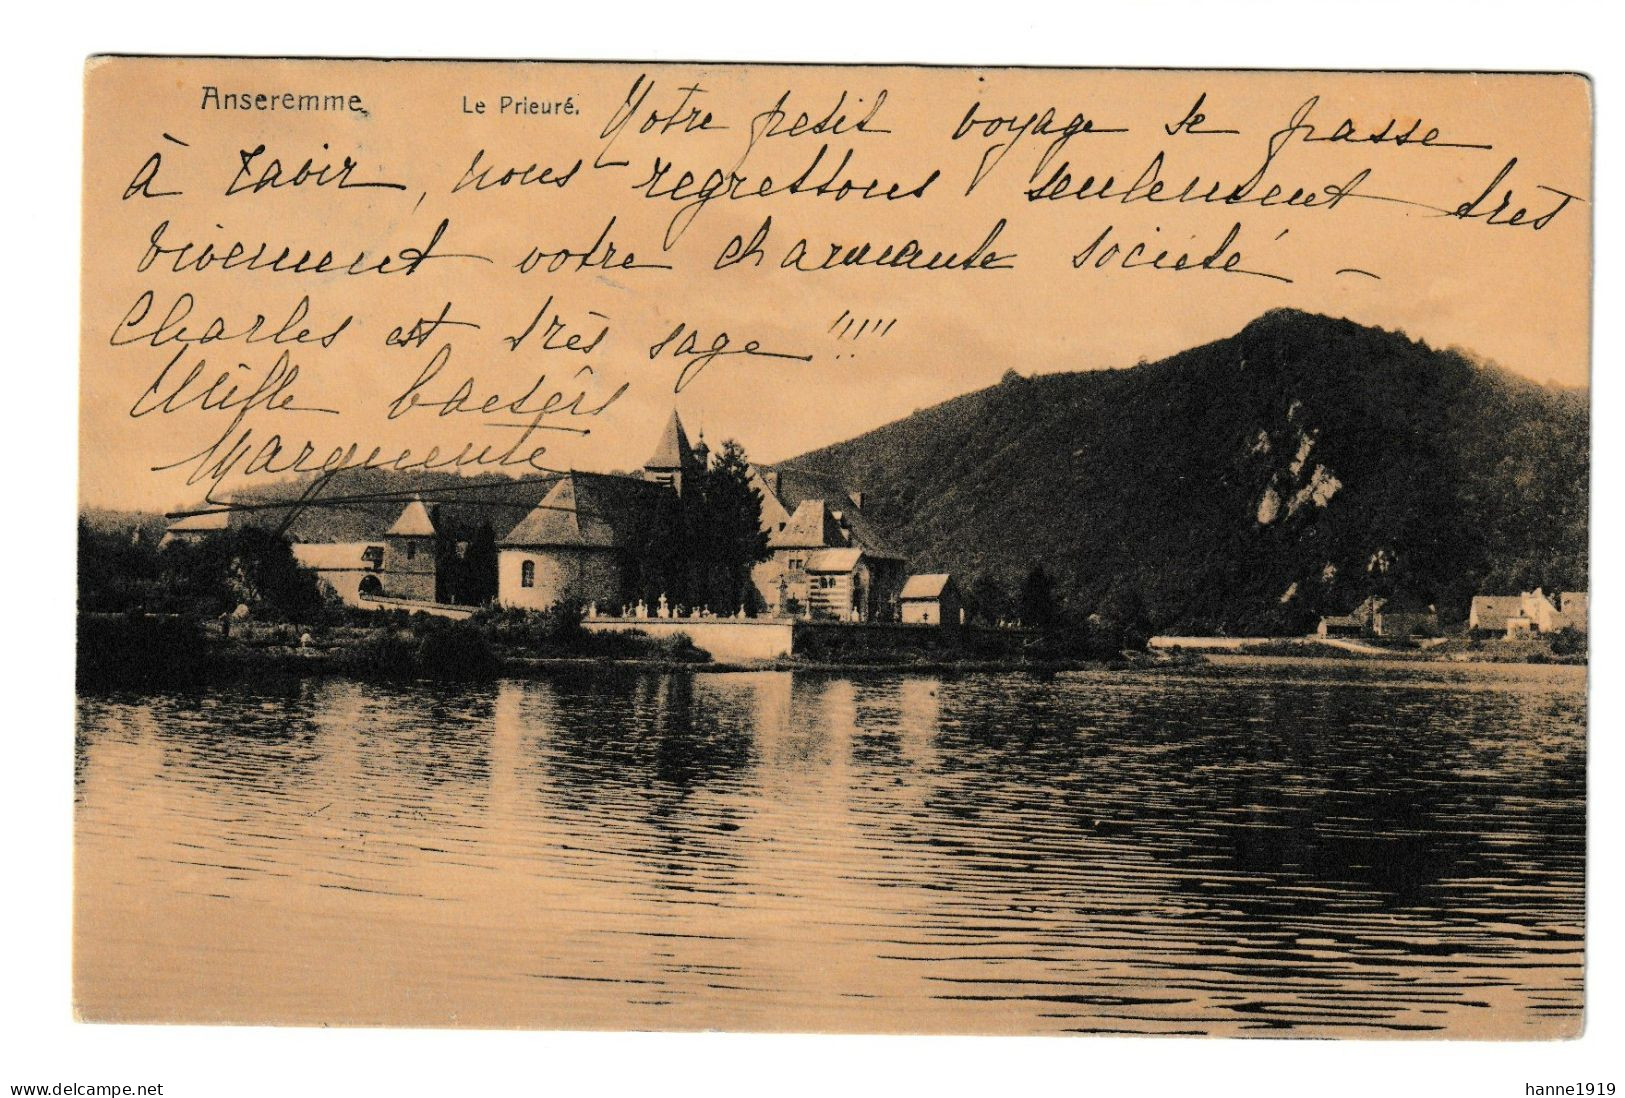 Anseremme Le Prieuré.
Notre petit voyage se passe
à ravir, nous regrettons seulement très
vivement votre charmante société –
Charles est très sage !!!!
Mille baesérs
Marguerite
www.delcampe.net
hanne1919